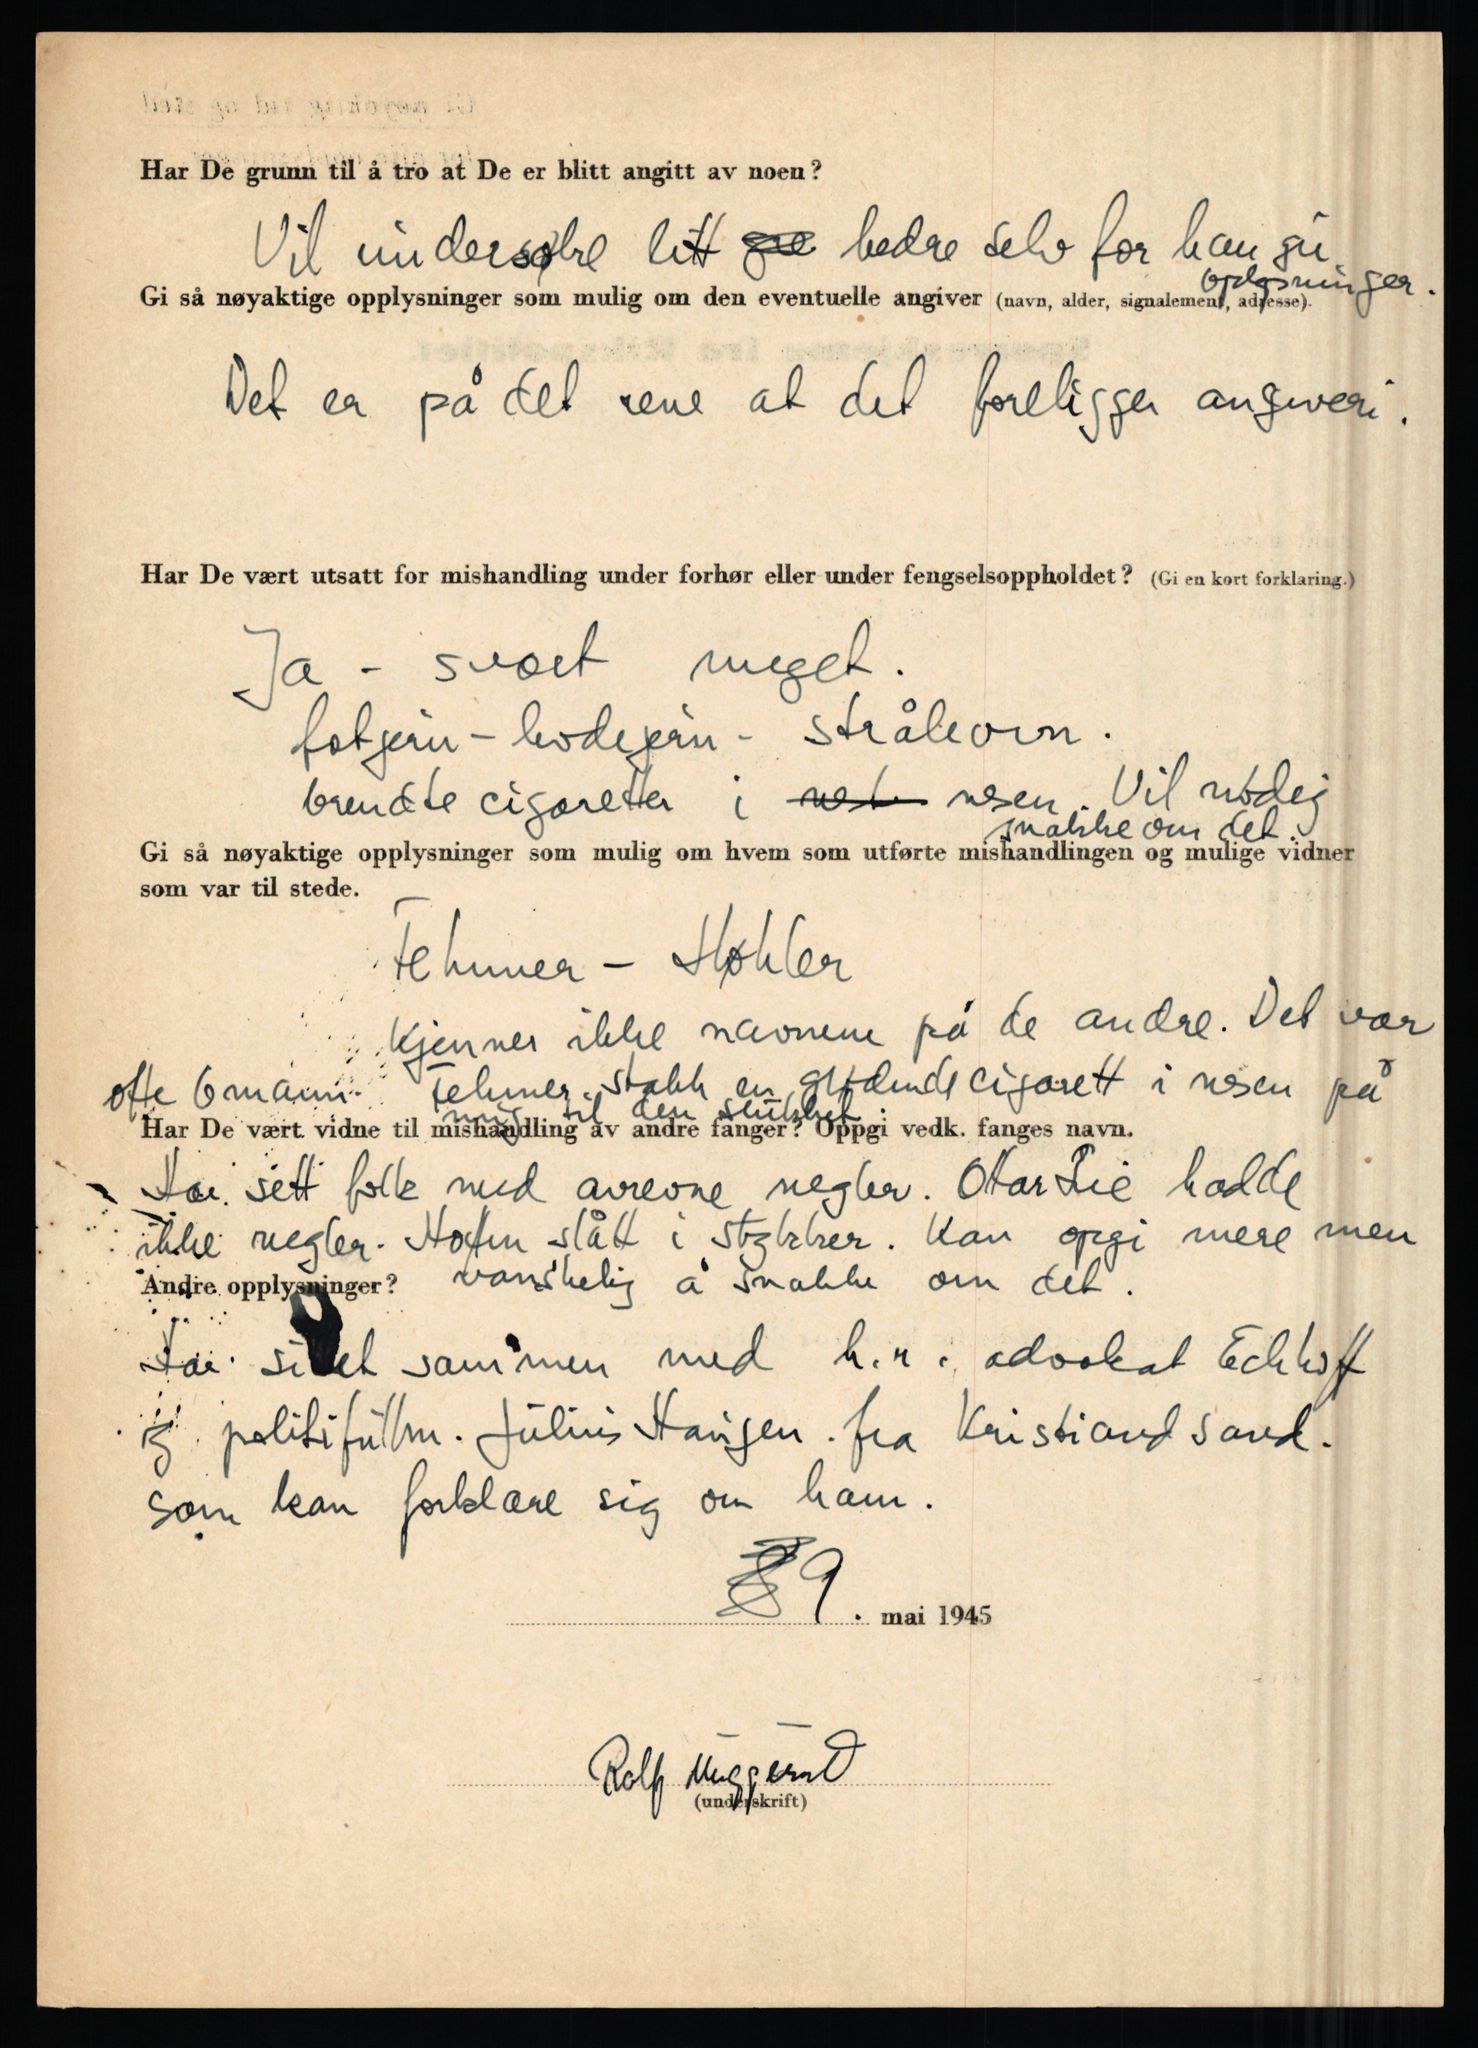 Har De grunn til å tro at De er blitt angitt av noen?
Vil undersøke litt bedre selv før han gir
opplysninger.
Gi så nøyaktige opplysninger som mulig om den eventuelle angiver (navn, alder, signalement, adresse).
Det er på det rene at det foreligger angiveri.
Har De vært utsatt for mishandling under forhør eller under fengselsoppholdet? (Gi en kort forklaring.)
Ja - svært meget.
fotjern - hodejern - stråleovn.
brendte cigaretter i nesen. Vil nødig
snakke om det.
Gi så nøyaktige opplysninger som mulig om hvem som utførte mishandlingen og mulige vidner
som var til stede.
Fehmer - Støhler
Kjenner ikke navnene på de andre. Det var
ofte 6 mann. Fehmer stakk en glødende cigarett i nesen på
mig til den sluknet.
Har De vært vidne til mishandling av andre fanger? Oppgi vedk. fanges navn.
Har sett folk med avrevne negler. Ottar Lie hadde
ikke negler. Hoften slått i stykker. Kan opgi mere men
vanskelig å snakke om det.
Andre opplysninger?
Har sittet sammen med h.r. advokat Eckhoff
og politifullm. Julius Haugen. fra Kristiandsand.
som kan forklare sig om ham.
9. mai 1945
Rolf
(underskrift)